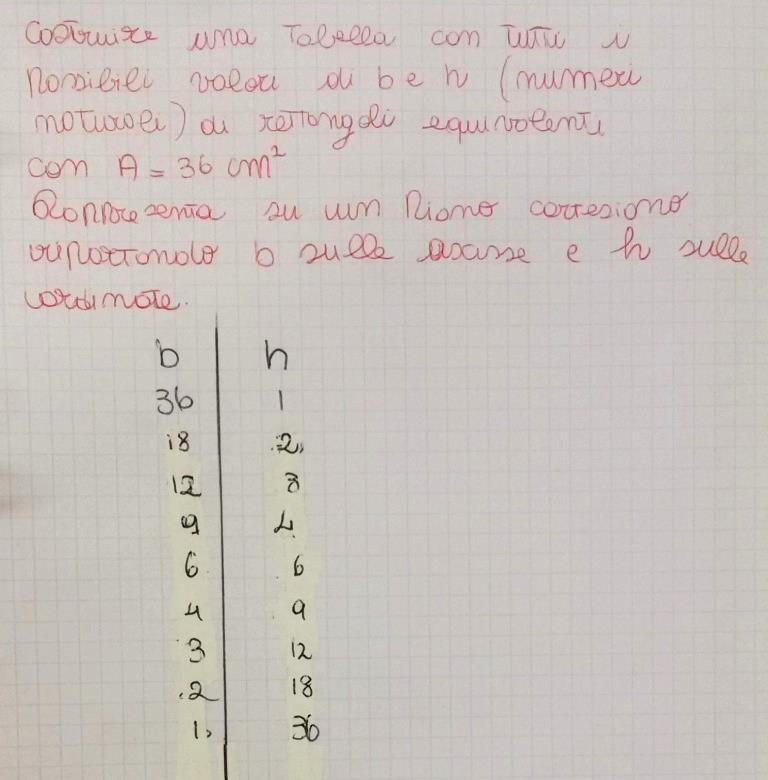 Costruire una Tabella con Tutti i
Possibili valori di b e h (numeri
naturali) di rettangoli equivalenti
con A = 36 cm²
Rappresenta su un Piano cartesiano
riportando b sulle ascisse e h sulle
ordinate.
b h
36 1
18 2
12 3
9 4
6 6
4 9
3 12
2 18
1 36